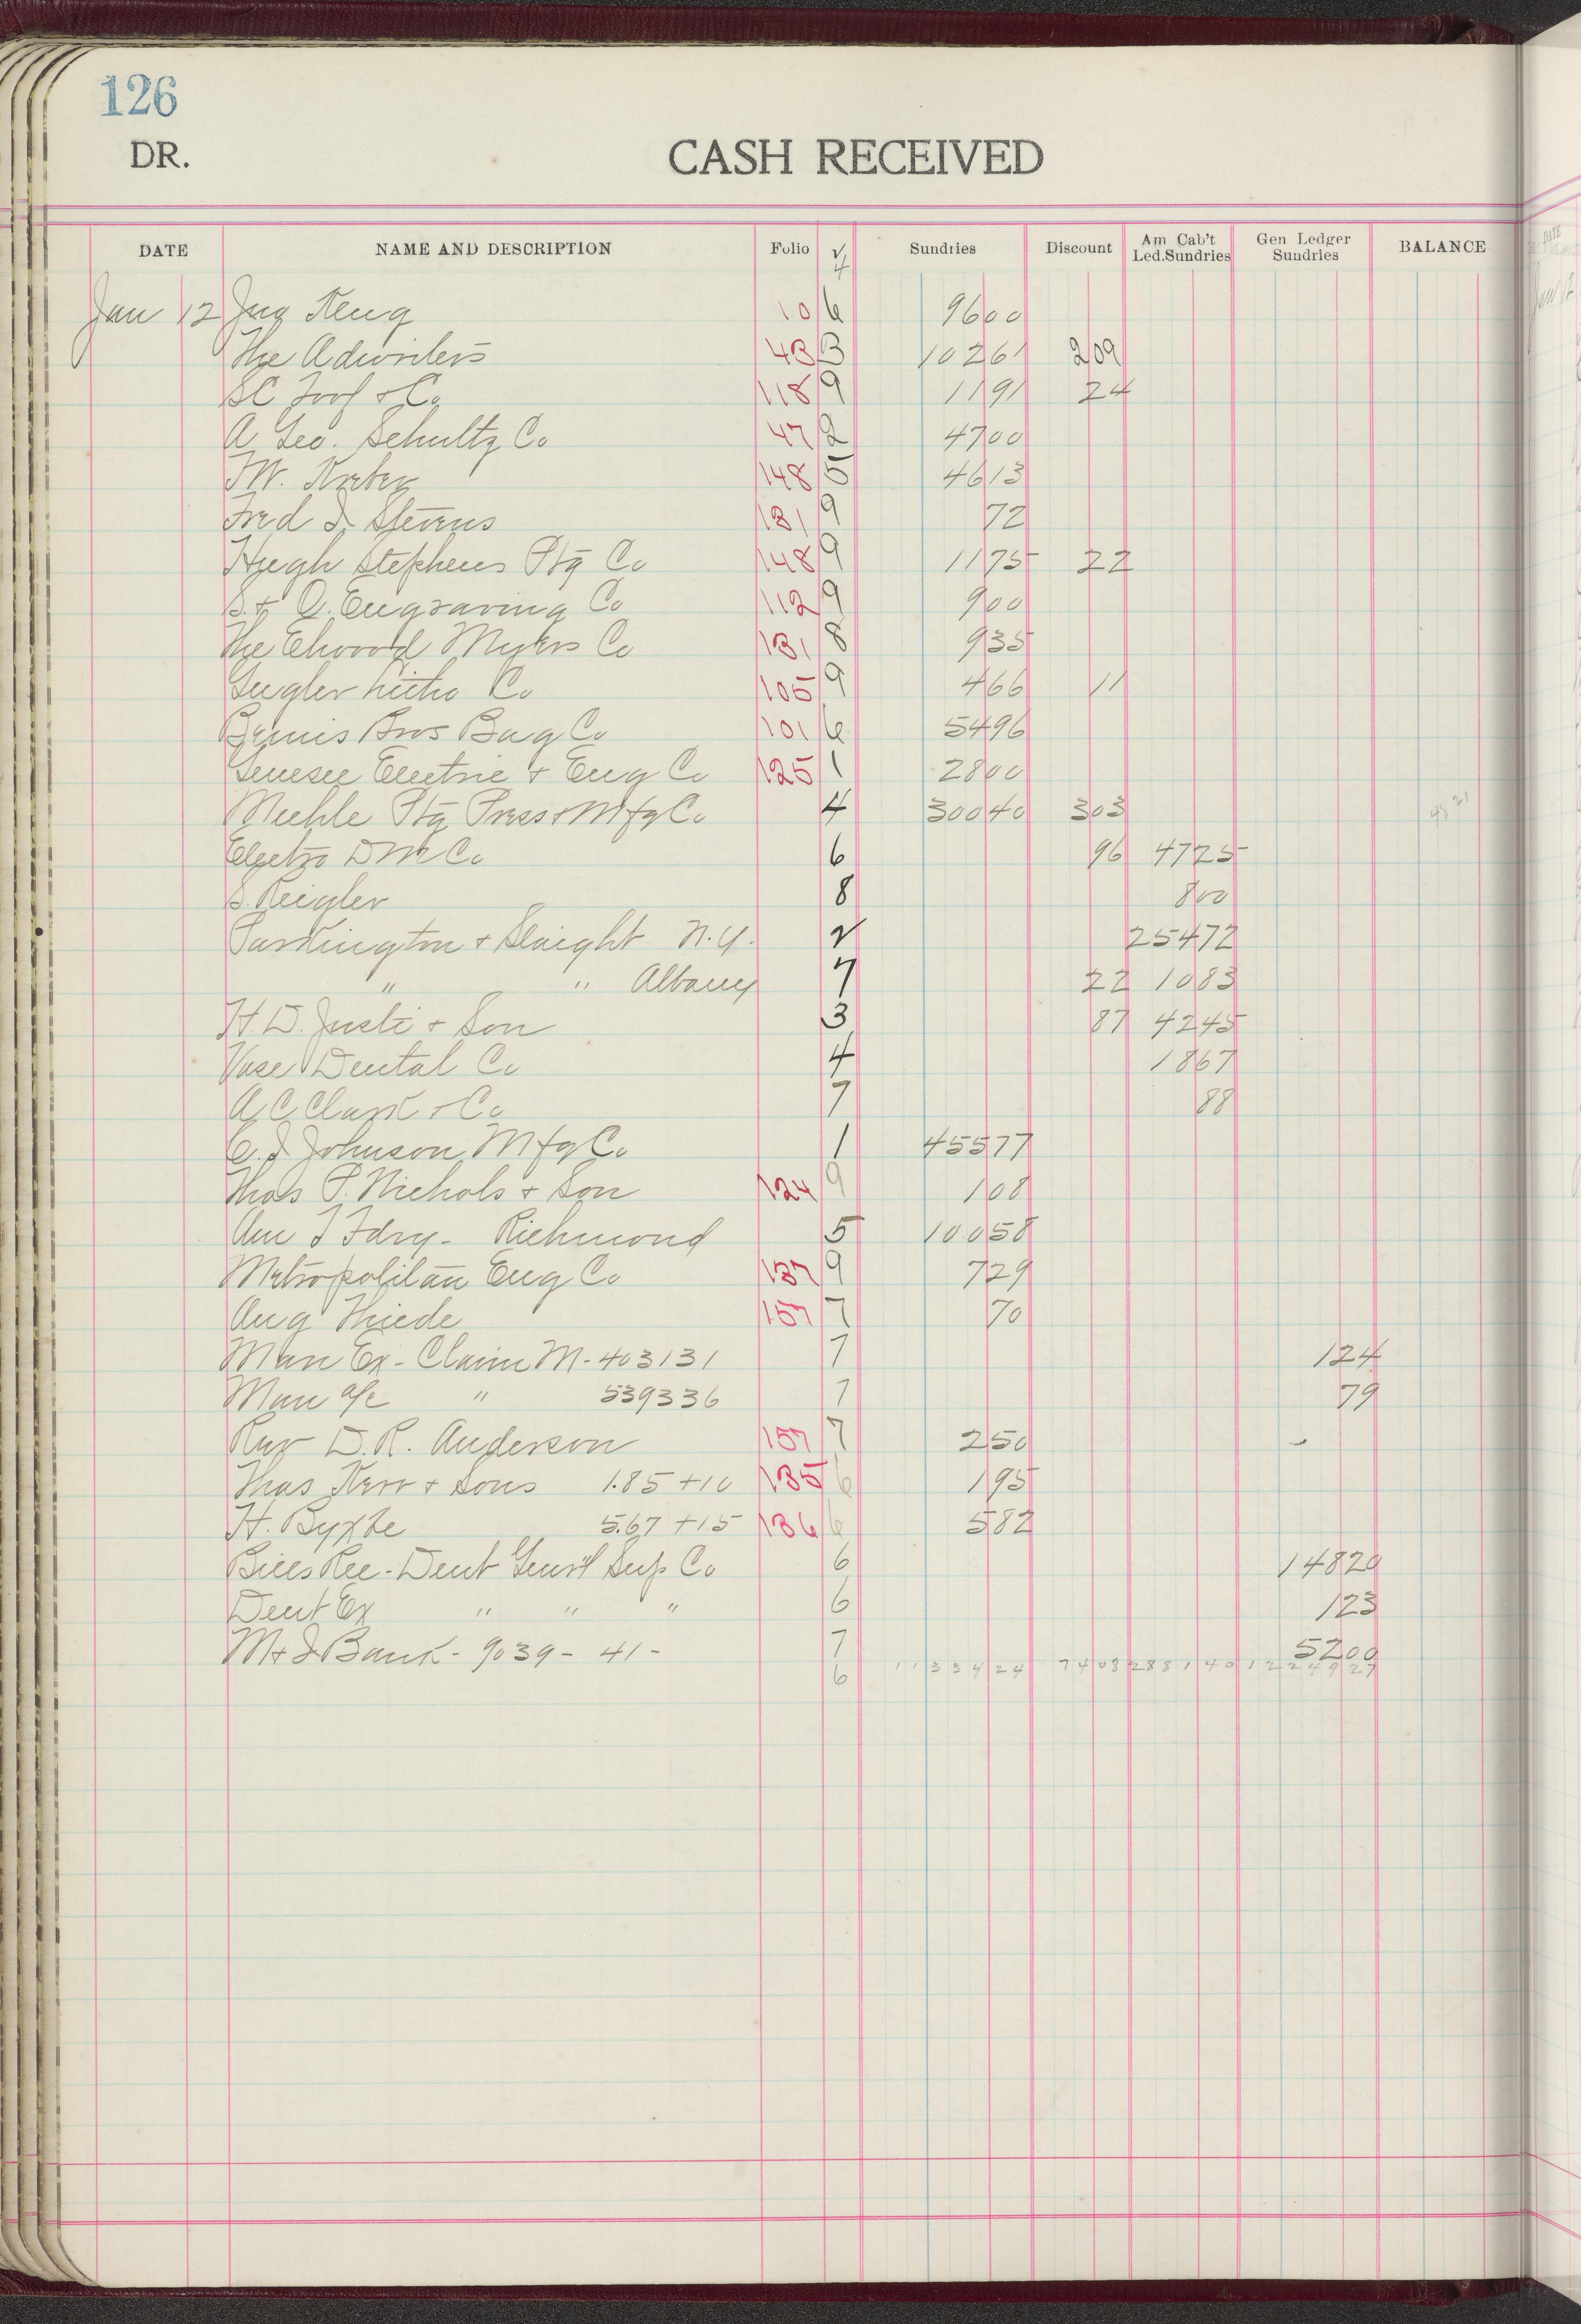 126
DR.
CASH RECEIVED
DATE NAME AND DESCRIPTION Folio √ Sundries Discount Am Cab't Led.Sundries Gen Ledger Sundries BALANCE
4
Jan 12 Jno 10 6 9600
The Adwriters 43 3 10261 209
S C Toof & Co 118 9 1191 24
A Geo. Schultz Co 47 2 4700
148 5 4613
Fred S. Stevens 131 9 72
Hugh Stephens Ptg Co 148 9 1175 22
S. & O. Engraving Co 112 9 900
The Elwood Myers Co 131 8 935
Gugler Litho Co 105 9 466 11
Bemis Bros Bag Co 101 6 5496
Genesee Electric & Eng Co 125 1 2800
Miehle Ptg Press & Mfg Co 4 30040 303 4821
Electro D M Co 6 96 4725
S. Reigler 8 800
& Slaight N.Y. 2 25472
" " Albany 7 22 1083
H. D. Justi & Son 3 87 4245
Vase Dental Co 4 1867
A C Clark & Co 7 88
E. J Johnson Mfg Co 1 45577
Thos P. Nichols & Son 124 9 108
Am T Fdry - Richmond 5 10058
Metropolitan Eng Co 137 9 729
Aug Thiede 157 7 70
Man Ex - Claim M - 403131 7 124
Man a/c " 539336 7 79
Rev D. R. Anderson 157 7 250
Thos Kerr & Sons 1.85 + 10 135 6 195
H. Byxbe 5.67 + 15 136 6 582
Bills Rec - Dent Gen'l Sup Co 6 14820
Dent Ex " " " 6 123
M & I Bank - 9039 - 41 - 7 5200
6 1133424 7408 288140 1224927